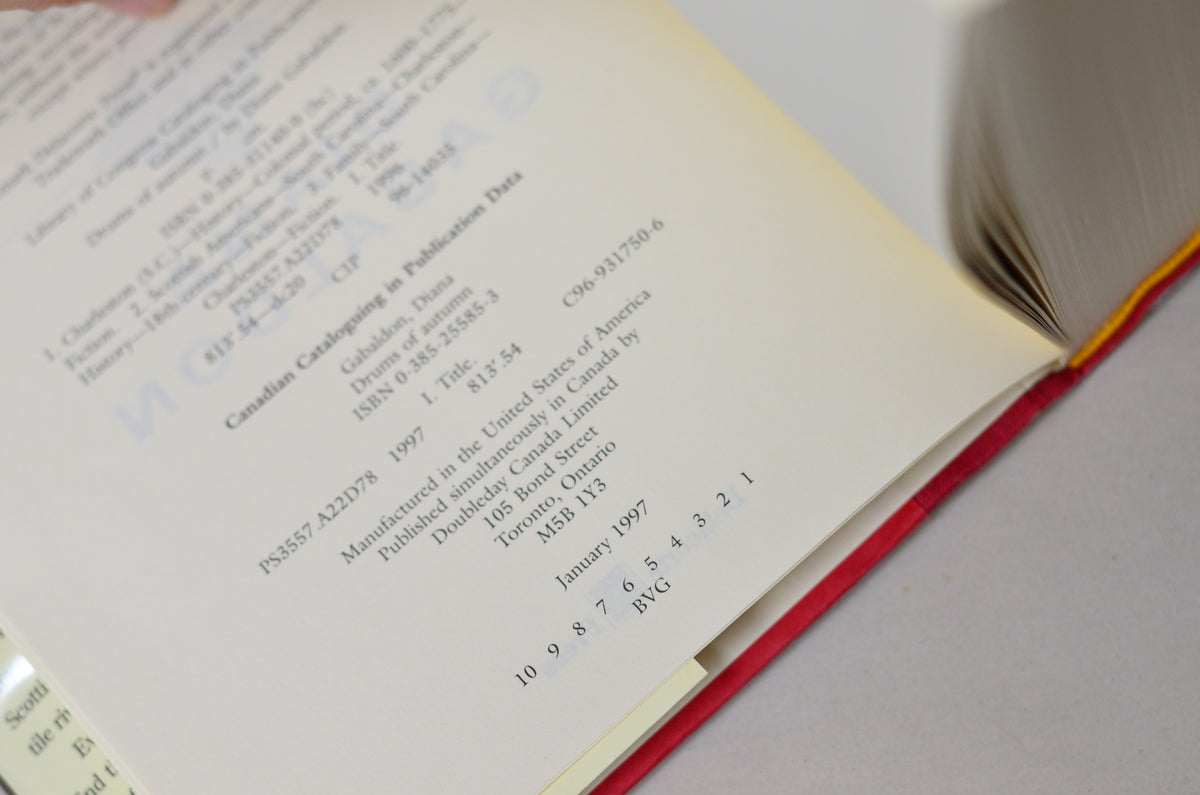 Library of Congress Cataloging in Publication
Gabaldon, Diana
Drums of autumn / by Diana Gabaldon.
p. cm.
ISBN 0-385-31140-0 (hc)
1. Charleston (S.C.)—History—Colonial period, ca. 1600-1775—
Fiction. 2. Scottish Americans—South Carolina—Charleston—
History—18th century—Fiction. 3. Family—South Carolina—
Charleston—Fiction. I. Title
PS3557.A22D78 1996
813'.54—dc20 96-14035
CIP
Canadian Cataloguing in Publication Data
Gabaldon, Diana
Drums of autumn
ISBN 0-385-25585-3
I. Title.
PS3557.A22D78 1997 813'.54 C96-931750-6
Manufactured in the United States of America
Published simultaneously in Canada by
Doubleday Canada Limited
105 Bond Street
Toronto, Ontario
M5B 1Y3
January 1997
10 9 8 7 6 5 4 3 2 1
BVG
Scotti
tile riv